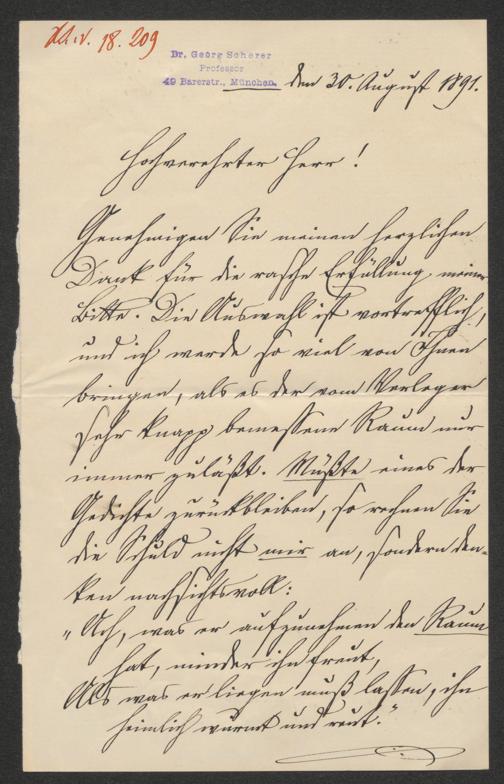 XI.v. 18. 209
Dr. Georg Scherer
Professor
49 Barerstr., München.
den 30. August 1891.
Hochverehrter Herr!
Genehmigen Sie meinen herzlichen
Dank für die rasche Erfüllung meiner
Bitte. Die Auswahl ist vortrefflich,
und ich werde so viel von Ihnen
bringen, als es der vom Verleger
sehr knapp bemessene Raum nur
immer zuläßt. Müßte eines der
Gedichte zurückbleiben, so rechnen Sie
die Schuld nicht mir an, sondern den-
ken nachsichtsvoll:
„Ach, was er aufzunehmen den Raum
hat, minder ihn freut,
Als was er liegen muß lassen, ihn
heimlich wurmt und reut.“